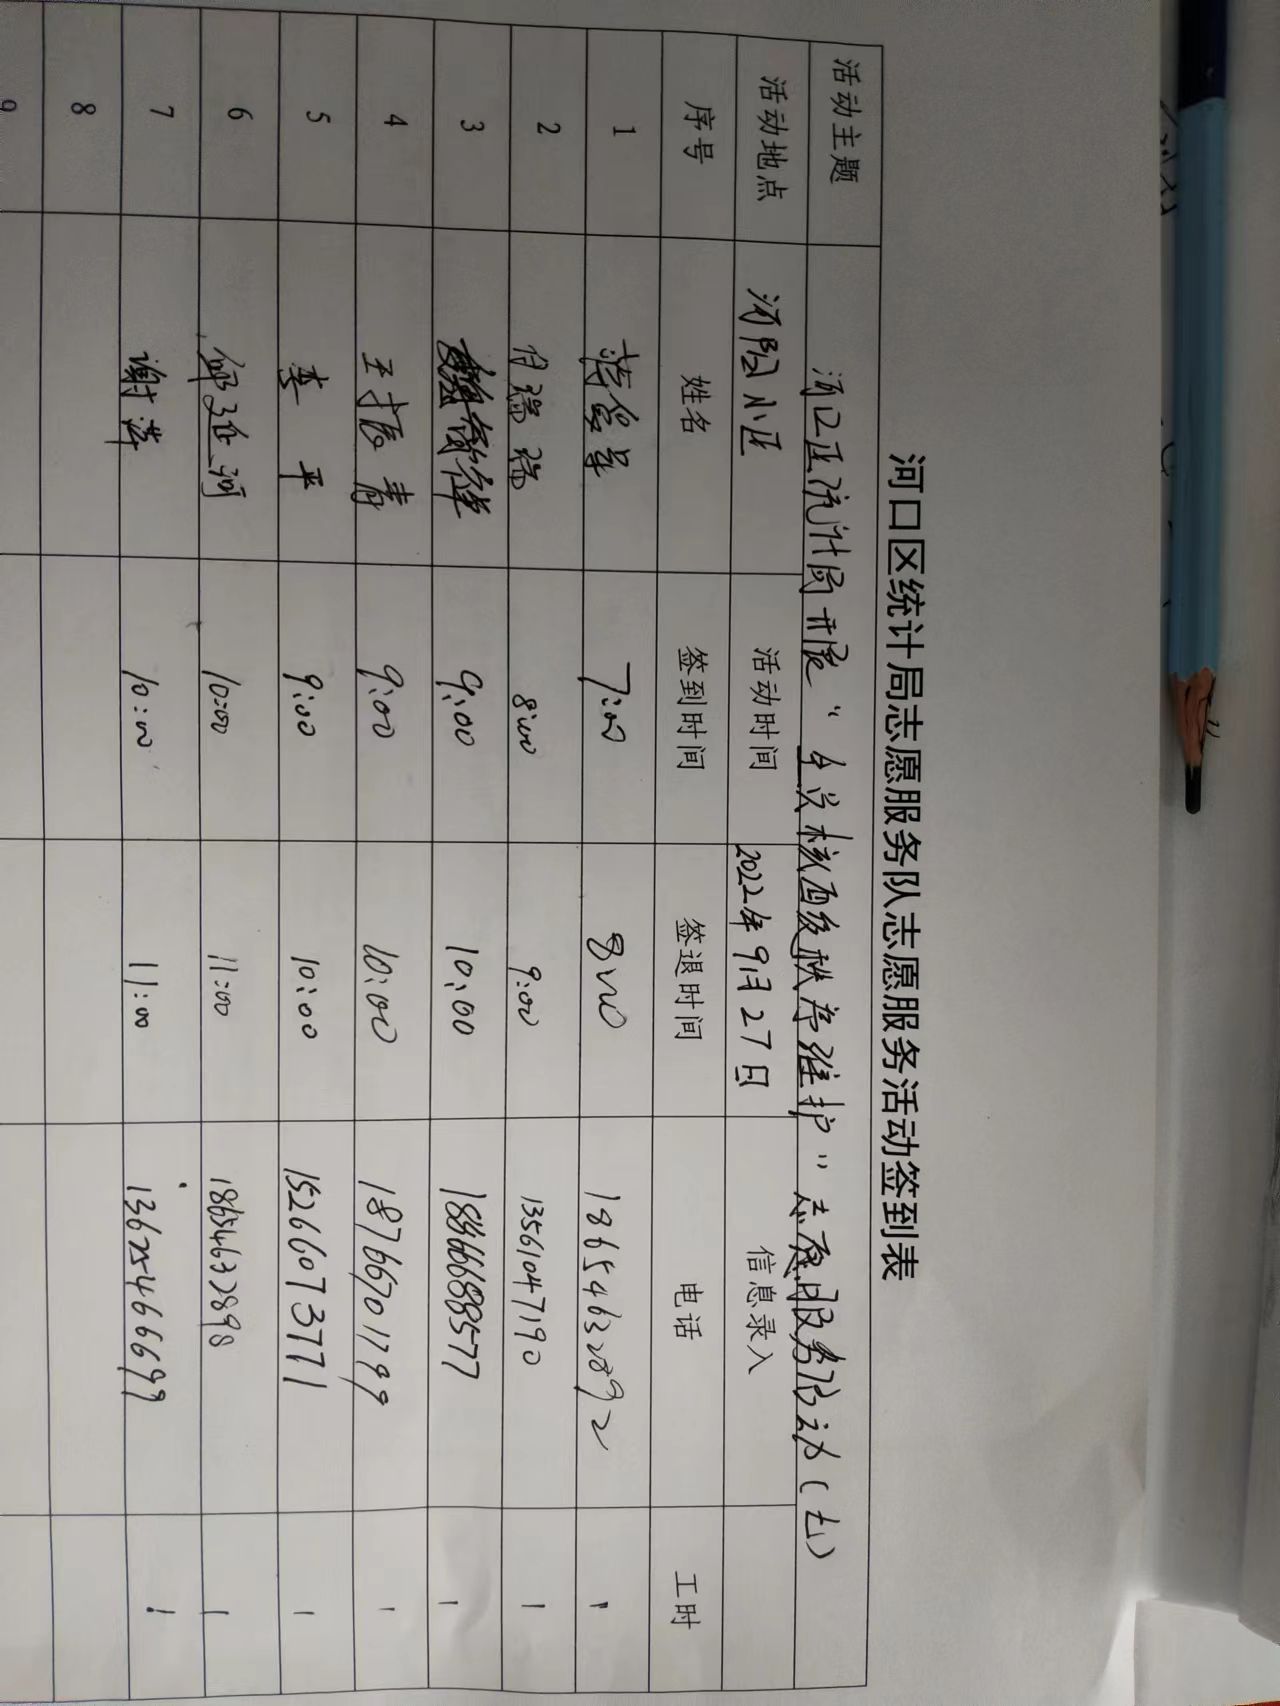 河口区统计局志愿服务队志愿服务活动签到表
活动主题 河口区统计局开展“全员核酸秩序维护”志愿服务活动(七)
活动地点 河阳小区 活动时间 2022年9月27日 信息录入
序号 姓名 签到时间 签退时间 电话 工时
1 7:00 8:00 18654632892 1
2 付瑞瑞 8:00 9:00 13561047190 1
3 9:00 10:00 18866688577 1
4 王振青 9:00 10:00 18766701799 1
5 李平 9:00 10:00 15266073771 1
6 10:00 11:00 18654632898 1
7 谢萍 10:00 11:00 13625466699 1
8
9